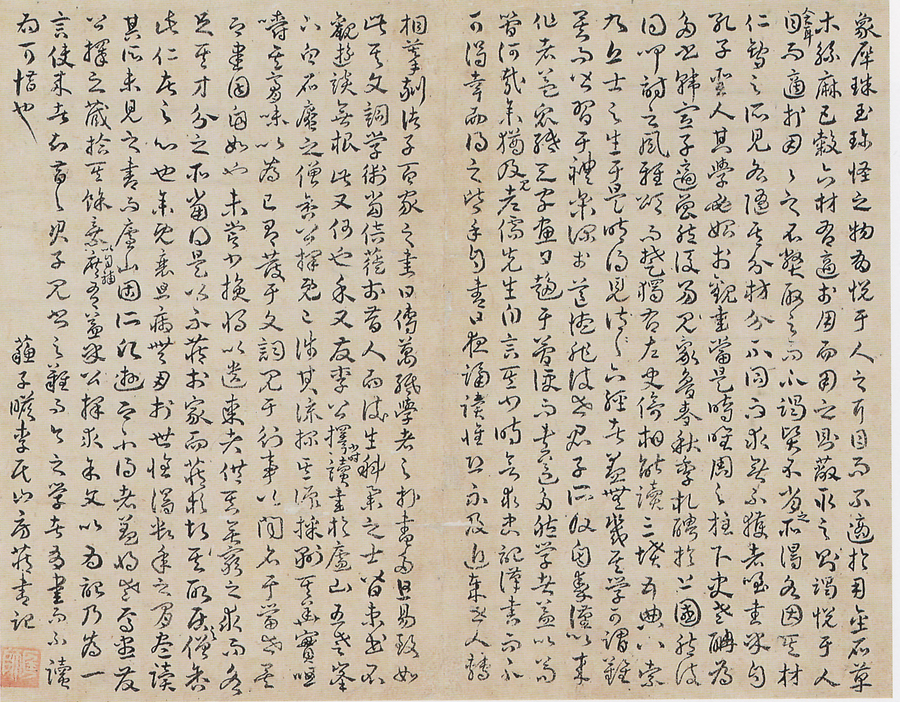 象犀珠玉珍怪之物有悅于人之耳目而不適於用金石草
木絲麻五穀六材有適於用而用之則敝取之則竭悅于人
之耳目而適於用用之不弊取之而不竭賢不肖之所得各因其材
仁智之所見各隨其分材分不同而求無不獲者唯書乎自
孔子聖人其學必始於觀書當是時唯周之柱下史老聃為
多書韓宣子適魯然後見易象魯春秋季札聘於上國然後
聞詩之風雅頌而楚獨有左史倚相能讀三墳五典八索
九丘士之生于是時得見諸六經者蓋無幾其學可謂難
矣而皆習于禮樂深於道德非後世君子所及自秦漢以來
作者益眾紙與字畫日趨于簡便而書益多然學者益以苟
簡何哉余猶及見老儒先生自言其少時欲求史記漢書而不
可得幸而得之皆手自書日夜誦讀惟恐不及近歲市人轉
相摹刻諸子百家之書日傳萬紙學者之於書多且易致如
此其文詞學術當倍蓰於昔人而後生科舉之士皆束書不
觀遊談無根此又何也余友李公擇少時讀書於廬山五老峯
下白石庵之僧舍公擇既已涉其流探其源採剝其華實咀
嚼其膏味以為己有發于文詞見于行事以聞名于當世矣
而書固自如也未嘗少損將以遺來者供其無窮之求而各
足其才分之所當得是以不藏於家而藏於故其所居僧舍
此仁者之心也余既衰且病無用於世惟得數年之間盡讀
其所未見之書而廬山固所願遊而不得者蓋將老焉盡發
公擇之藏拾其餘棄以自補庶有益乎公擇求余文以為記乃為一
言使來者知昔之君子見書之難而今之學者有書而不讀
為可惜也
蘇子瞻李氏山房藏書記